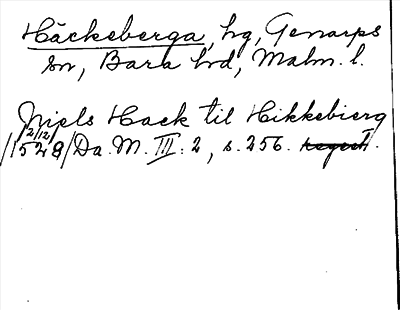 Häckeberga, hg, Genarps
sn, Bara hd, Malm. l.
Niels Hack til Hikkebierg
2/12
/1528/ Da. M. III: 2, s. 256.